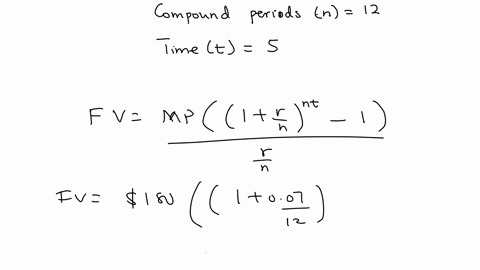 Compound periods (n) = 12
Time (t) = 5
FV = MP((1 + r/n)^nt - 1)
r/n
FV = $180 ((1 + 0.07/12)